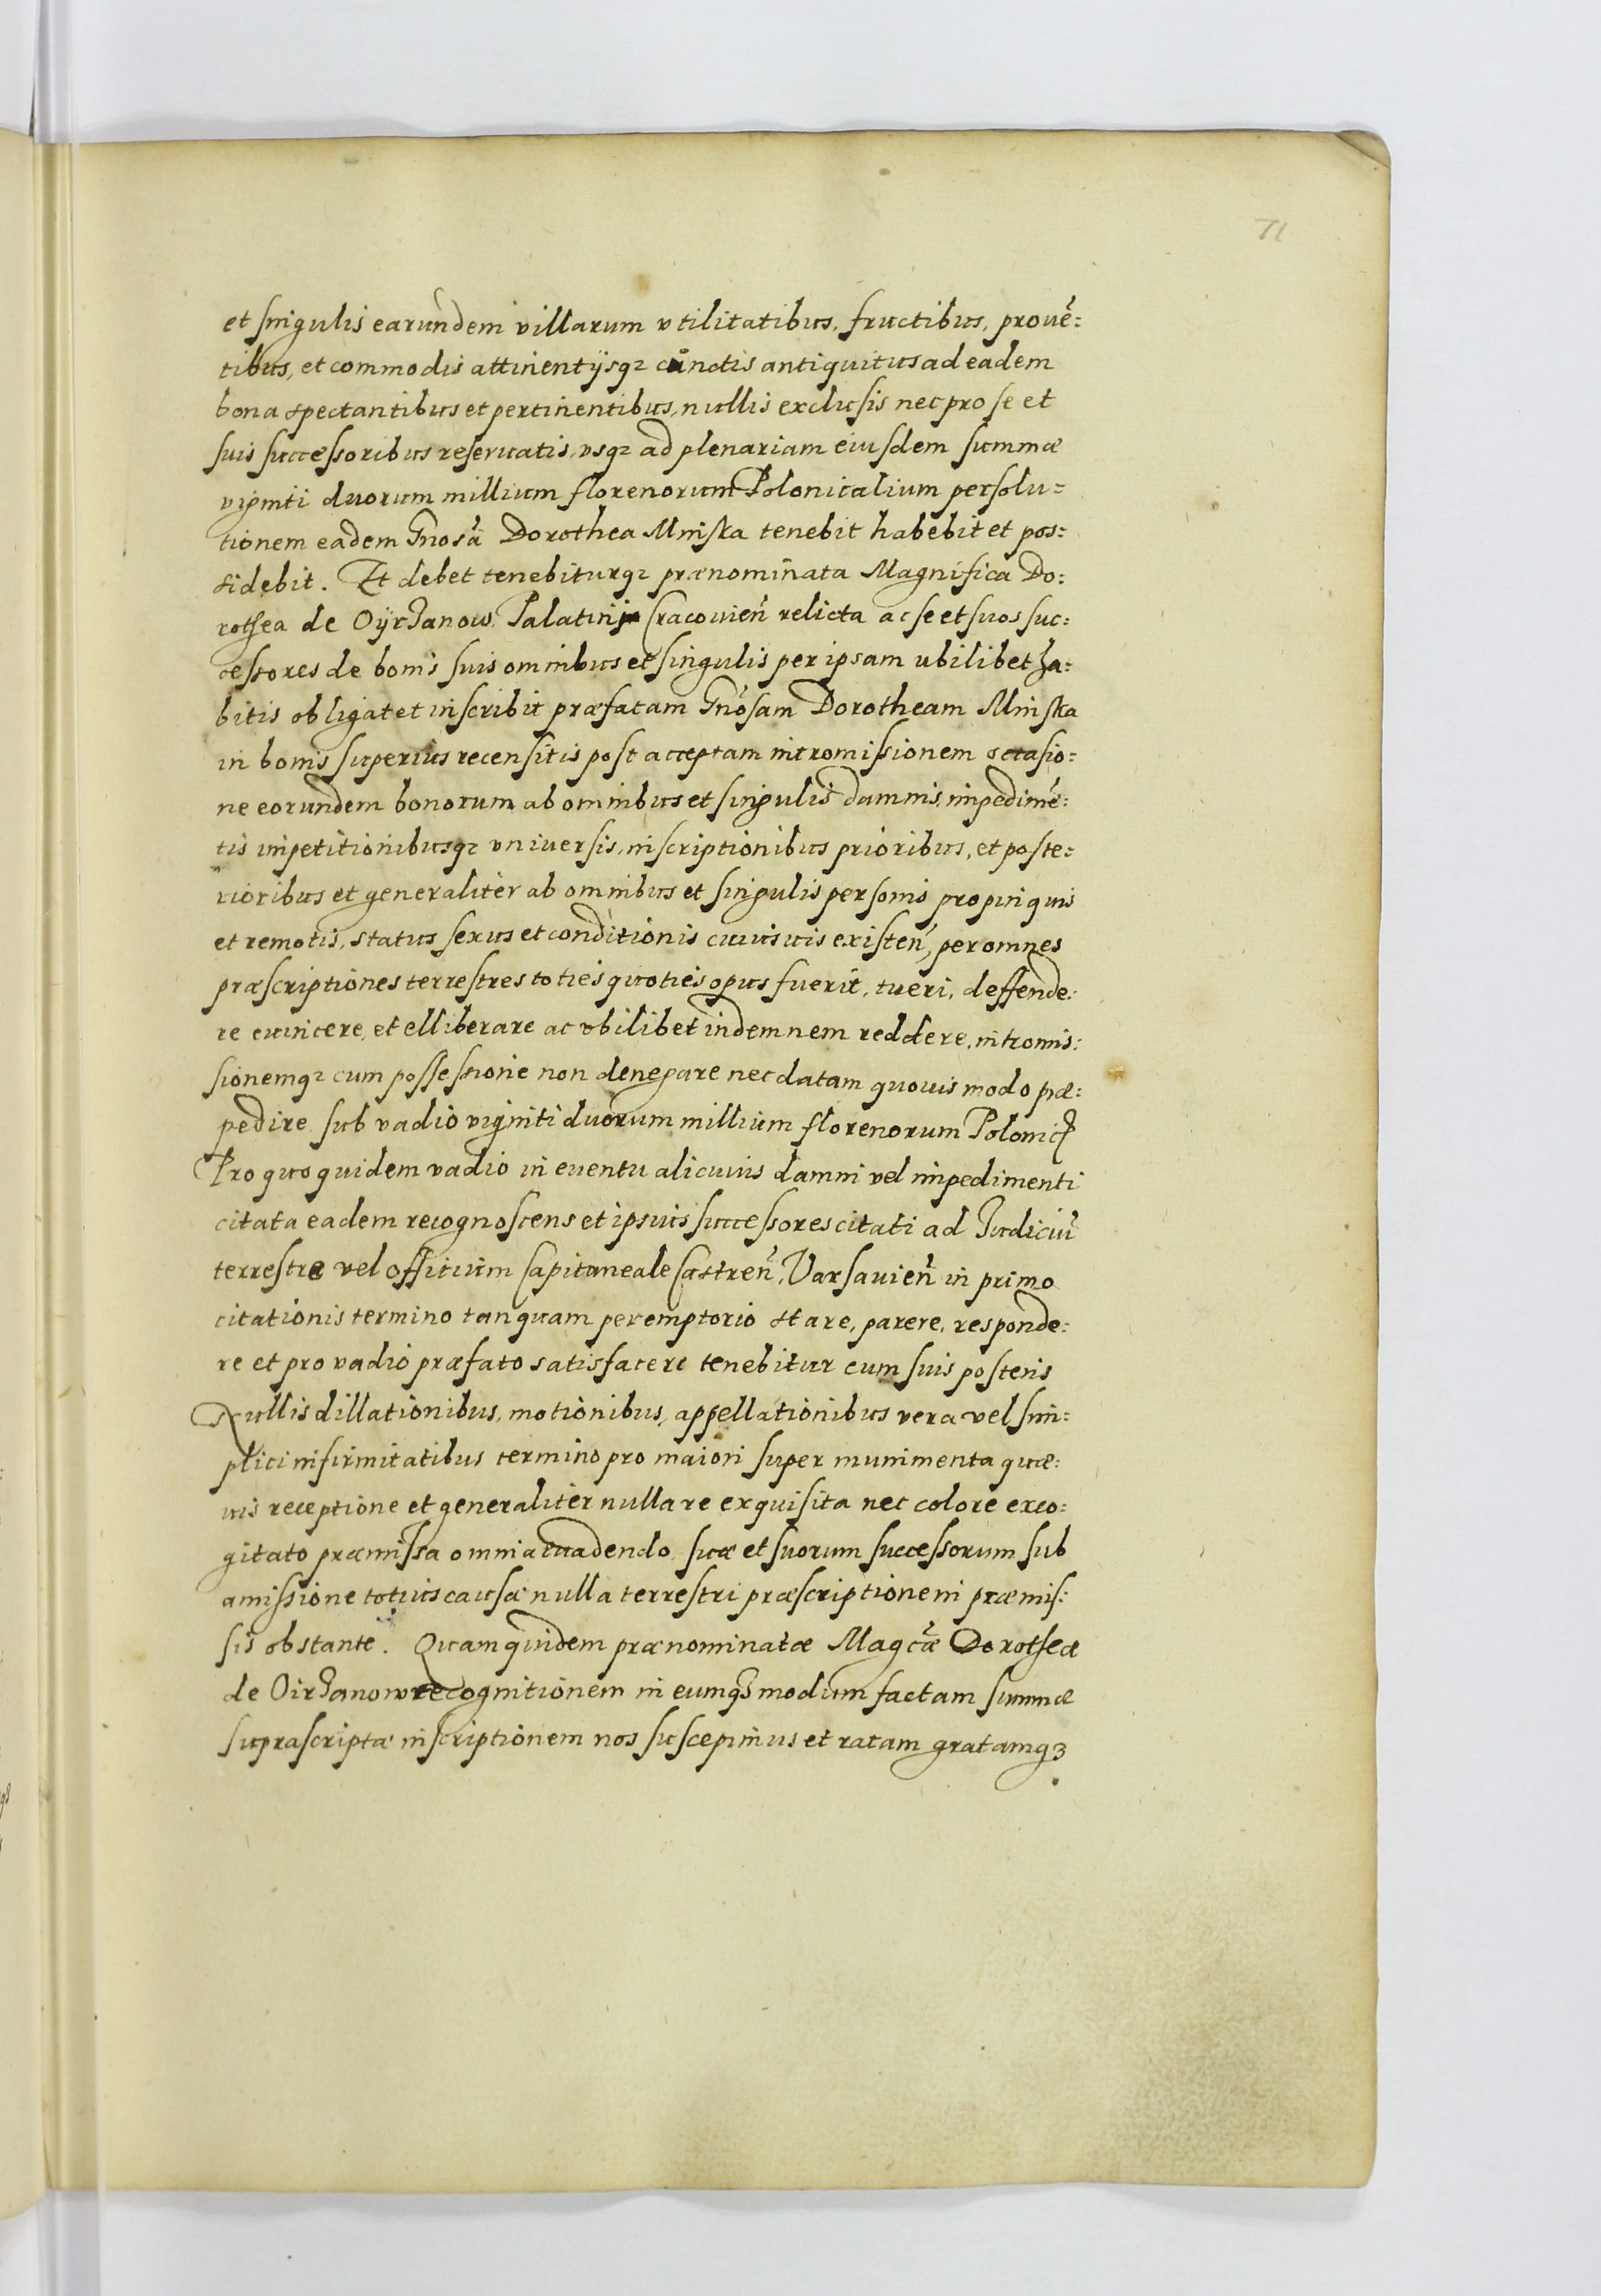 71
et singulis earundem villarum vtilitatibus, fructibus, prouē:
tibus, et commodis attinentijsqz cunctis antiquitus ad eadem
bona spectantibus et pertinentibus, nullis exclusis nec pro se et
suis successoribus reseruatis, vsqz ad plenariam eiusdem summæ
viginti duorum millium florenorum Polonicalium persolu=
tionem eadem Gnosā Dorothea Minska tenebit habebit et pos:
sidebit. Et debet tenebiturqz prænominata Magnifica Do:
rothea de Oyrzanow, Palatini Cracouien̄ relicta ac se et suos suc:
cessores de bonis suis omnibus et singulis per ipsam ubilibet ha:
bitis obligat et inscribit præfatam Gnōsam Dorotheam Minska
in bonis superius recensitis post acceptam intromissionem occasio:
ne eorundem bonorum ab omnibus et singulis damnis, impedimē:
tis impetitionibusqz vniuersis, inscriptionibus prioribus, et poste:
rioribus et generaliter ab omnibus et singulis personis propinquis
et remotis, status sexus et conditionis cuiusuis existen̄, per omnes
præscriptiones terrestres toties quoties opus fuerit, tueri, deffende:
re euincere, et elliberare ac vbilibet indemnem reddere, intromis:
sionemqz cum possessione non denegare nec datam quouis modo præ:
pedire sub vadio viginti duorum millium florenorum Polonic̄
Pro quo quidem vadio in euentu alicuius damni vel impedimenti
citata eadem recognoscens et ipsius successores citati ad Iudiciū
terrestre vel officium Capitaneale Castren̄, Varsauien̄ in primo
citationis termino tanquam peremptorio stare, parere, responde:
re et pro vadio præfato satisfacere tenebitur cum suis posteris
Nullis dillationibus, motionibus, appellationibus vera vel sim:
plici infirmitatibus termino pro maiori super munimenta quæ:
uis receptione et generaliter nulla re exquisita nec colore exco:
gitato præmissa omnia euadendo, suæ et suorum successorum sub
amissione totius causæ nulla terrestri præscriptione in præmis:
sis obstante. Quam quidem prænominatæ Magcæ Dorotheæ
de Oirzanow recognitionem in eumqz modum factam summæ
suprascriptæ inscriptionem nos suscepimus et ratam gratamqz